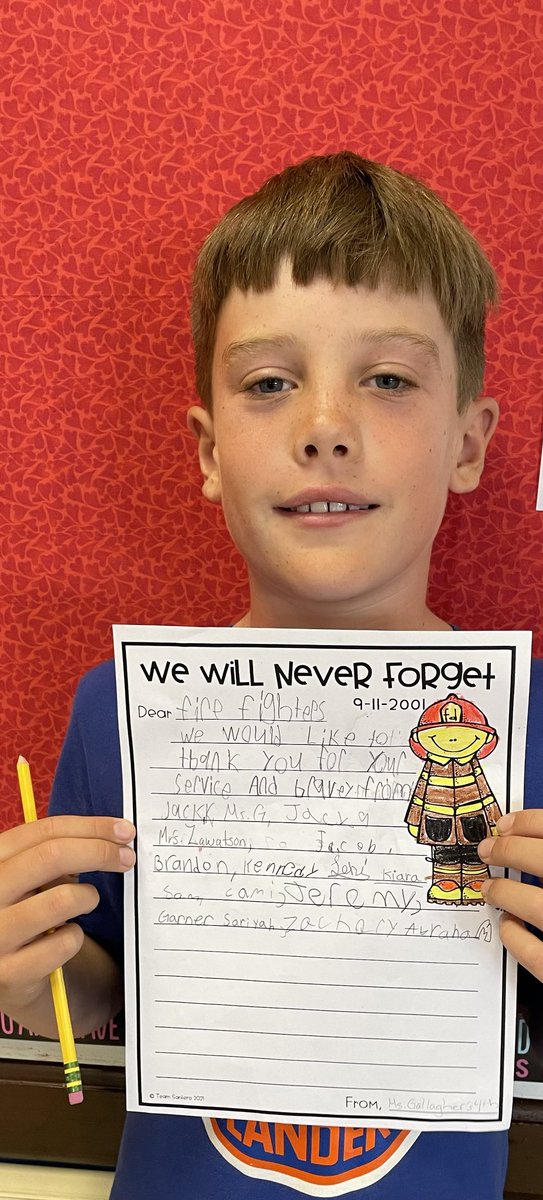 We Will Never Forget
9-11-2001
Dear fire fighters
we would like to
thank you for your
service and bravery from
Jackk Ms.G, Jacya
Mrs. Zawatson, Jacob,
Brandon, Kennedy Kiara
Sam, Cami, Jeremy,
Garner Sariyah, Zachary Abraham
© Team Santero 2021
From, Ms. Gallaghers 4th
LANDER